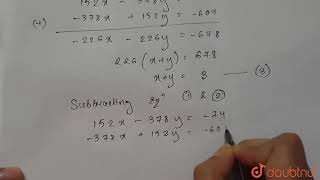 152x - 378y = -74
(+) -378x + 152y = -604
-226x - 226y = -678
226(x+y) = 678
x+y = 3 — (3)
Subtracting eqⁿ ① & ②
152x - 378y = -74
-378x + 152y = -60
doubtnut